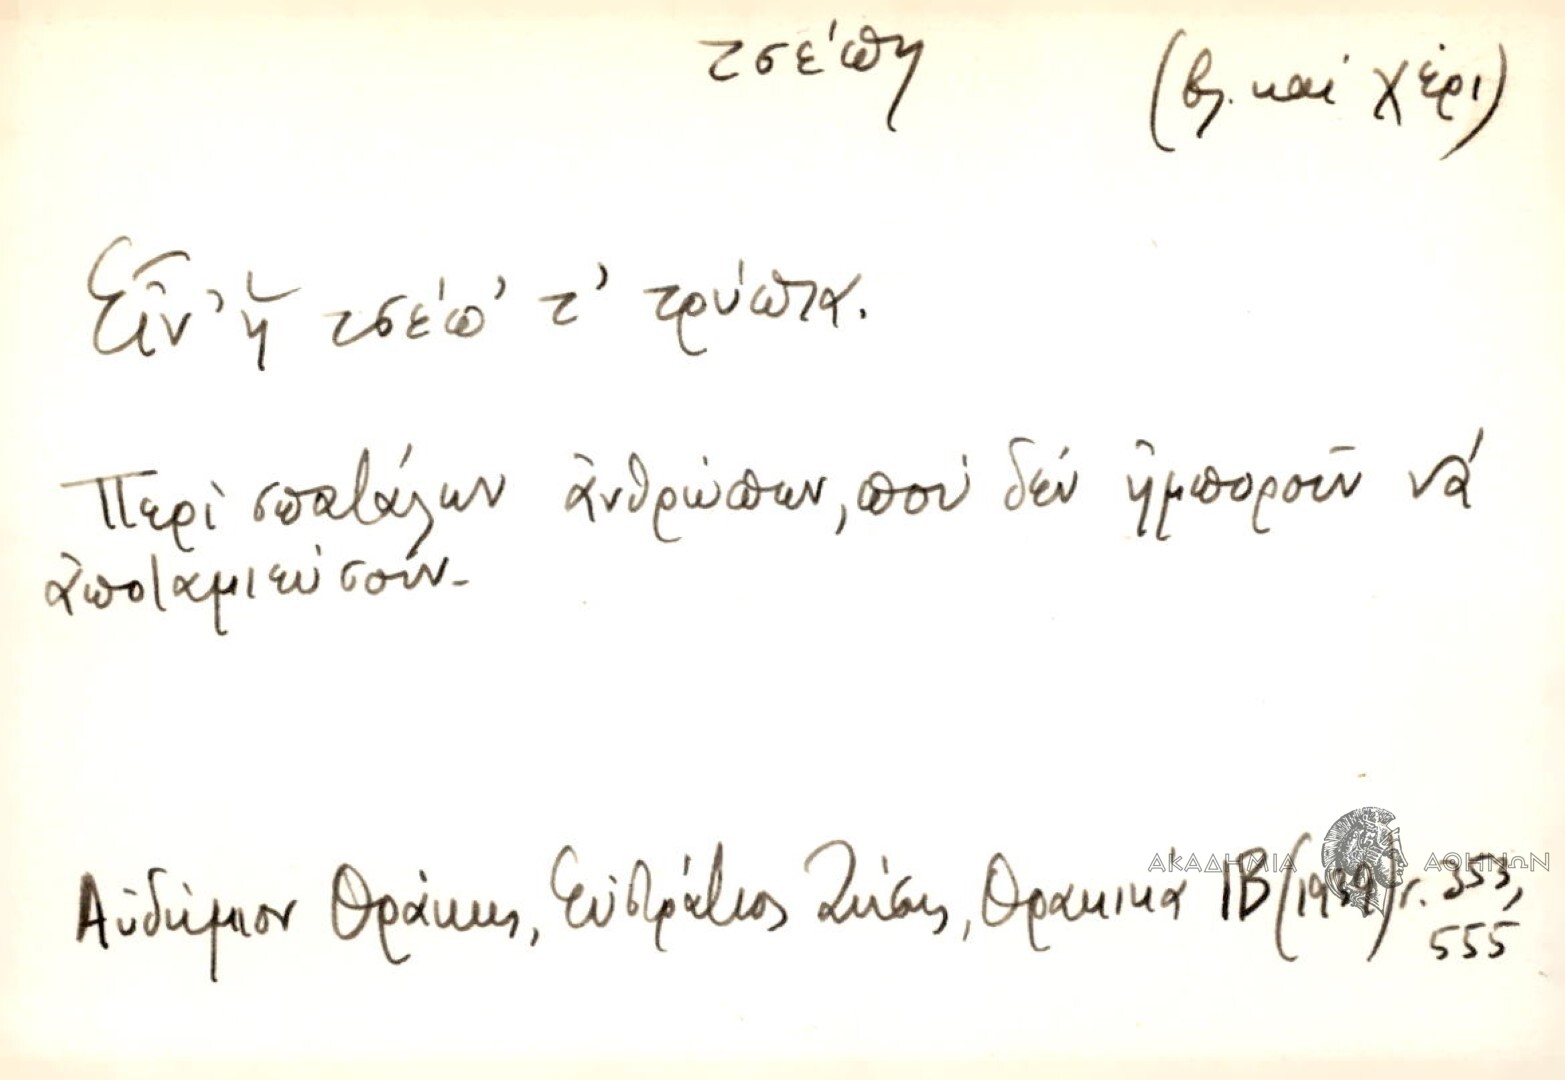 τσέπη (βλ. καί χέρι)
Εἶν' ἡ τσέπ' τ' τρύπια.
Περὶ σπατάλων ἀνθρώπων, πού δέν ἠμποροῦν νά
ἀποταμιεύσουν.
ΑΚΑΔΗΜΙΑ ΑΘΗΝΩΝ
Αὐδήμιον Θράκης, Εὐστράτιος Ζήσης, Θρακικά ΙΒ (1939) σ. 353,
555